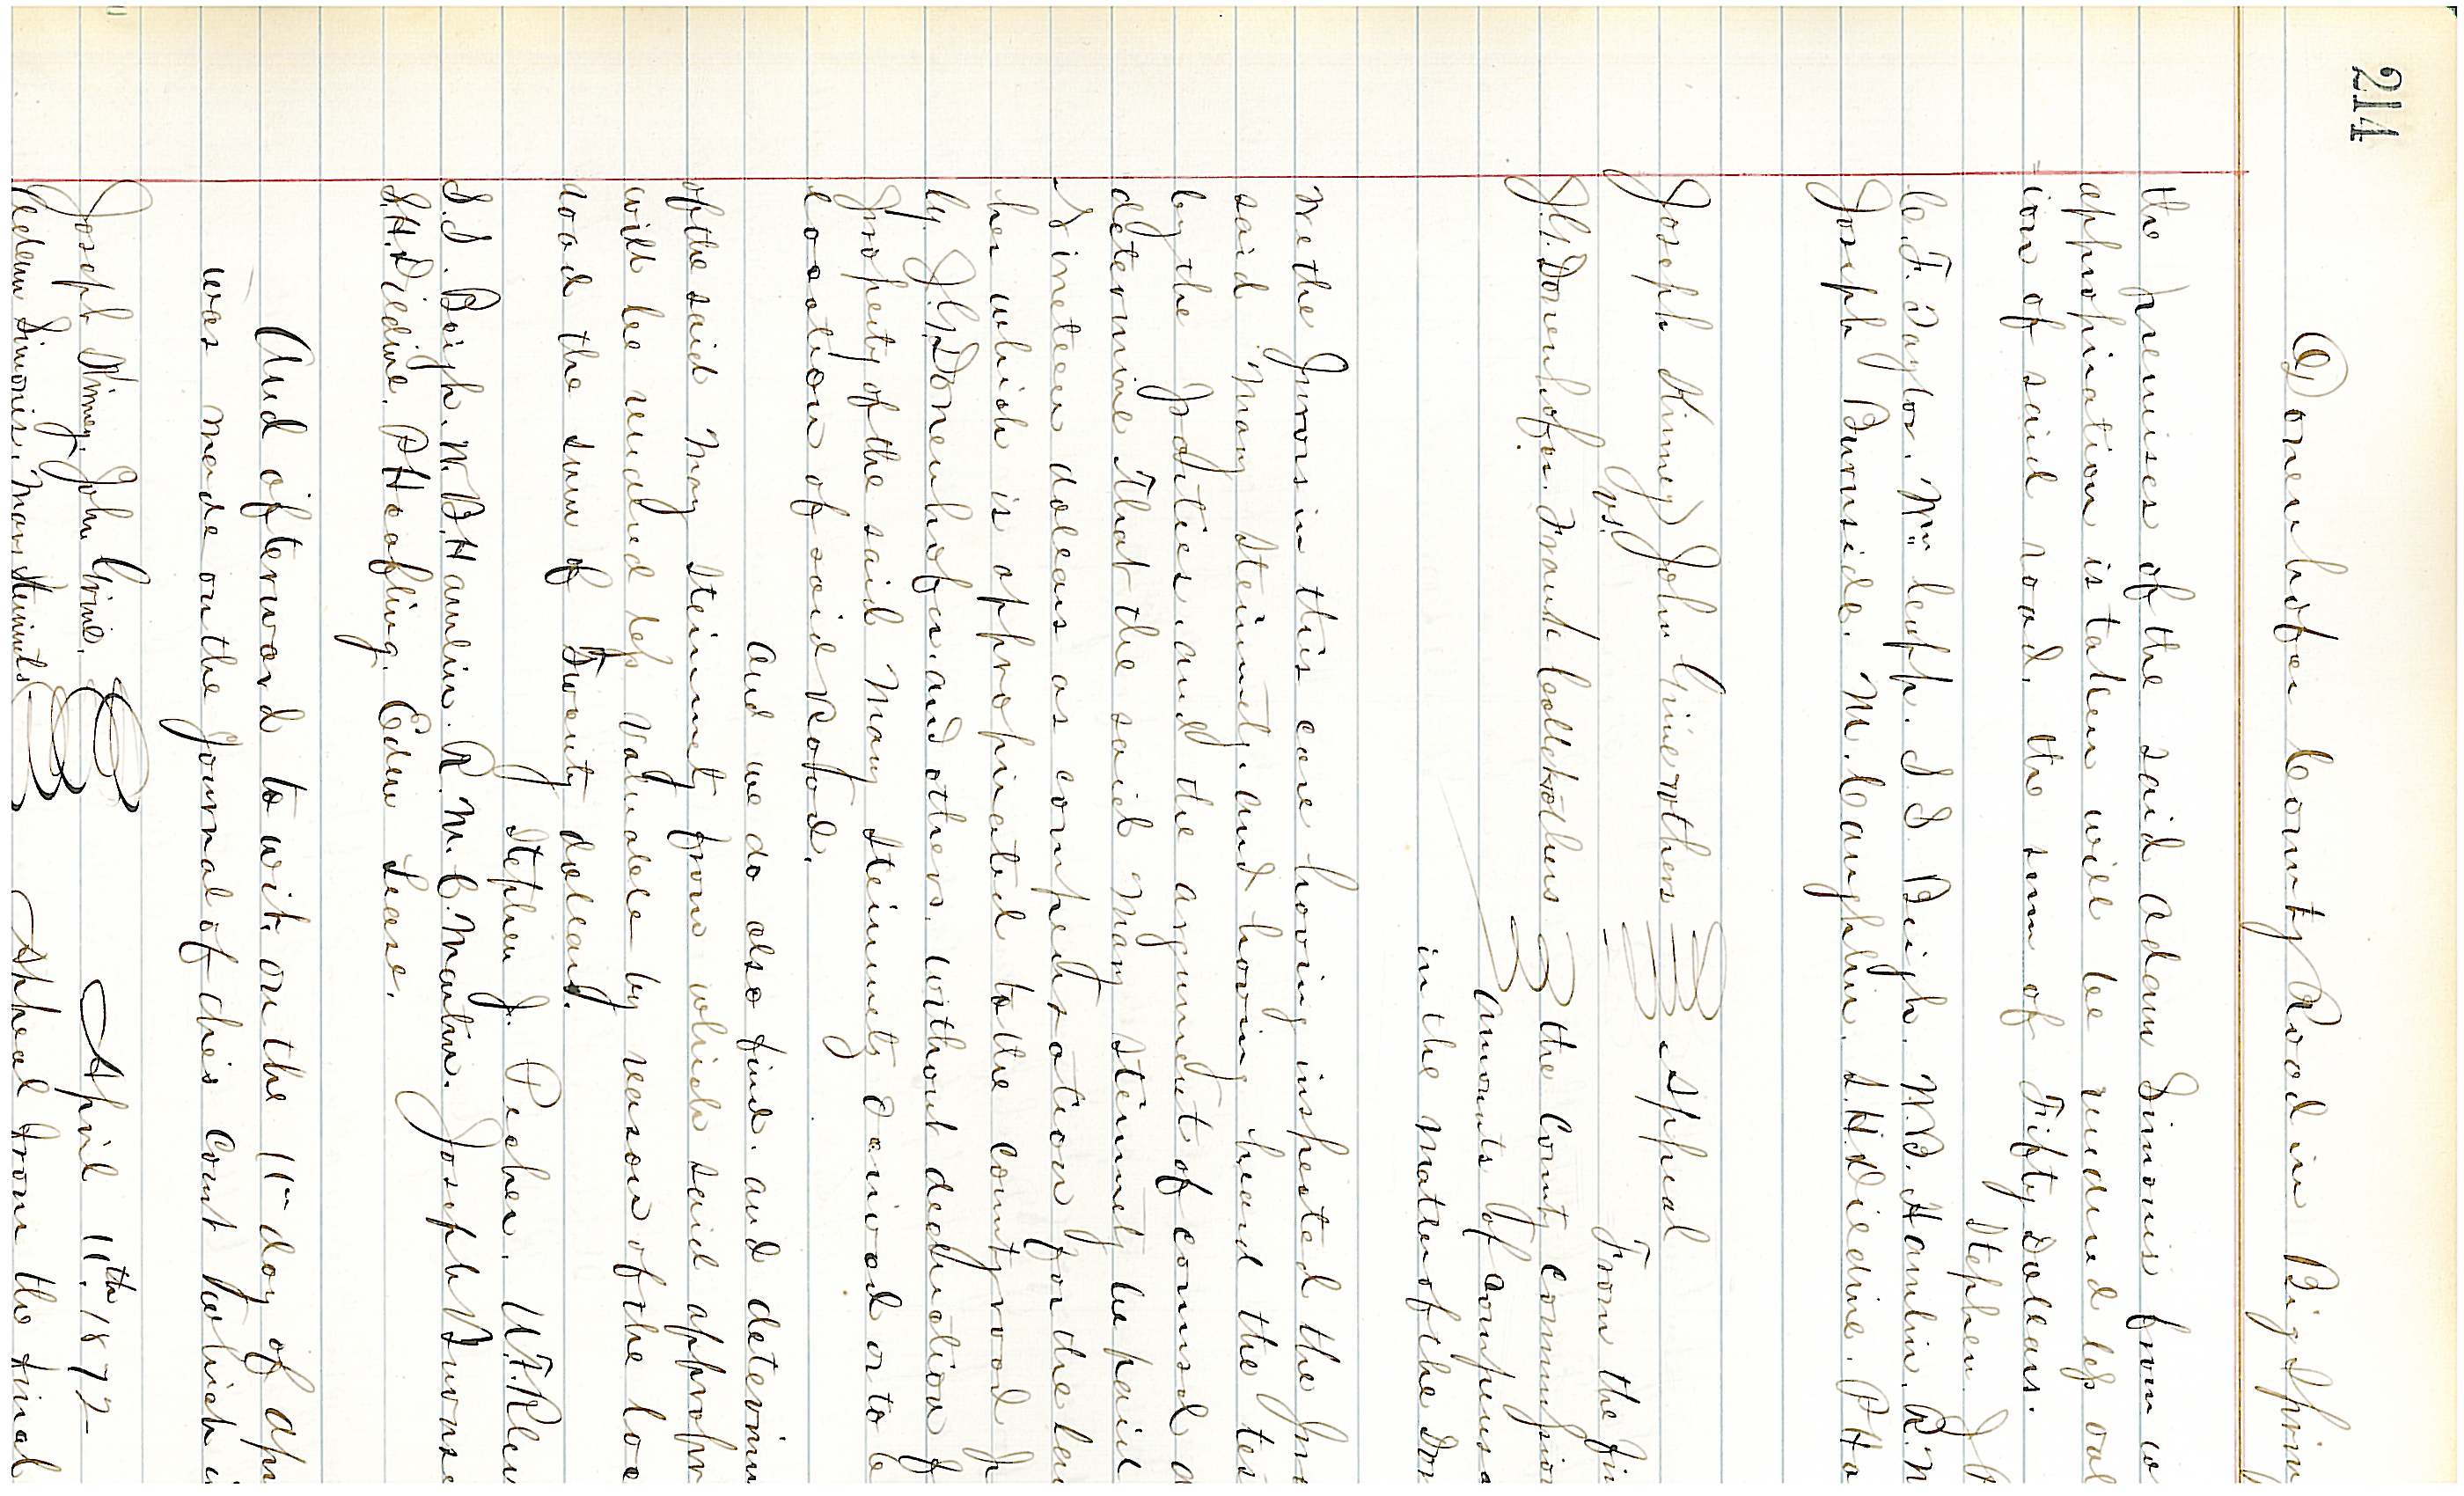 214
Donenhofer County Road in Big Spring
the premises of the said Adam Simonis from w
appropriation is taken will be rendered less val
ion of said road, the sum of Fifty Dollars.
Stephen J
C. F. Taylor. Wm Cupp. S. S. Beigh. W. B. Hamlin. R. M
Joseph Burnside. M. Caughlin. S. H. Dildine. P. Ho
Joseph Kinney John Grine & others
vs. Appeal
From the fin
J. G. Donenhofer. Frank Collet & others the County Commission
Amounts of Compensa
in the matter of the Don
We the Jurors in this case having inspected the pre
said Mary Steinmetz, and having heard the tes
by the parties, and the argument of counsel d
determine That the said Mary Steinmetz be paid
Nineteen dollars as compensation for the lan
her which is appropriated to the county road p
by J. G. Donenhofer, and others, without deduction f
property of the said Mary Steinmetz derived or to b
location of said Road.
And we do also find, and determin
of the said Mary Steinmetz from which said appropr
will be rendered less valuable by reason of the loc
road the sum of Twenty dollars.
Stephen J. Pecher.
S. S. Beigh. W. B. Hamlin. R. M. C. Martin. Joseph Burnsi
S. H. Dildine. P. Hoofling. Eden Lease.
And afterward to wit, on the 11th day of Apr
was made on the Journal of this Court which i
Joseph Kinney. John Grine. April 11th. 1872
Adam Simonis. Mary Steinmetz Appeal from the final